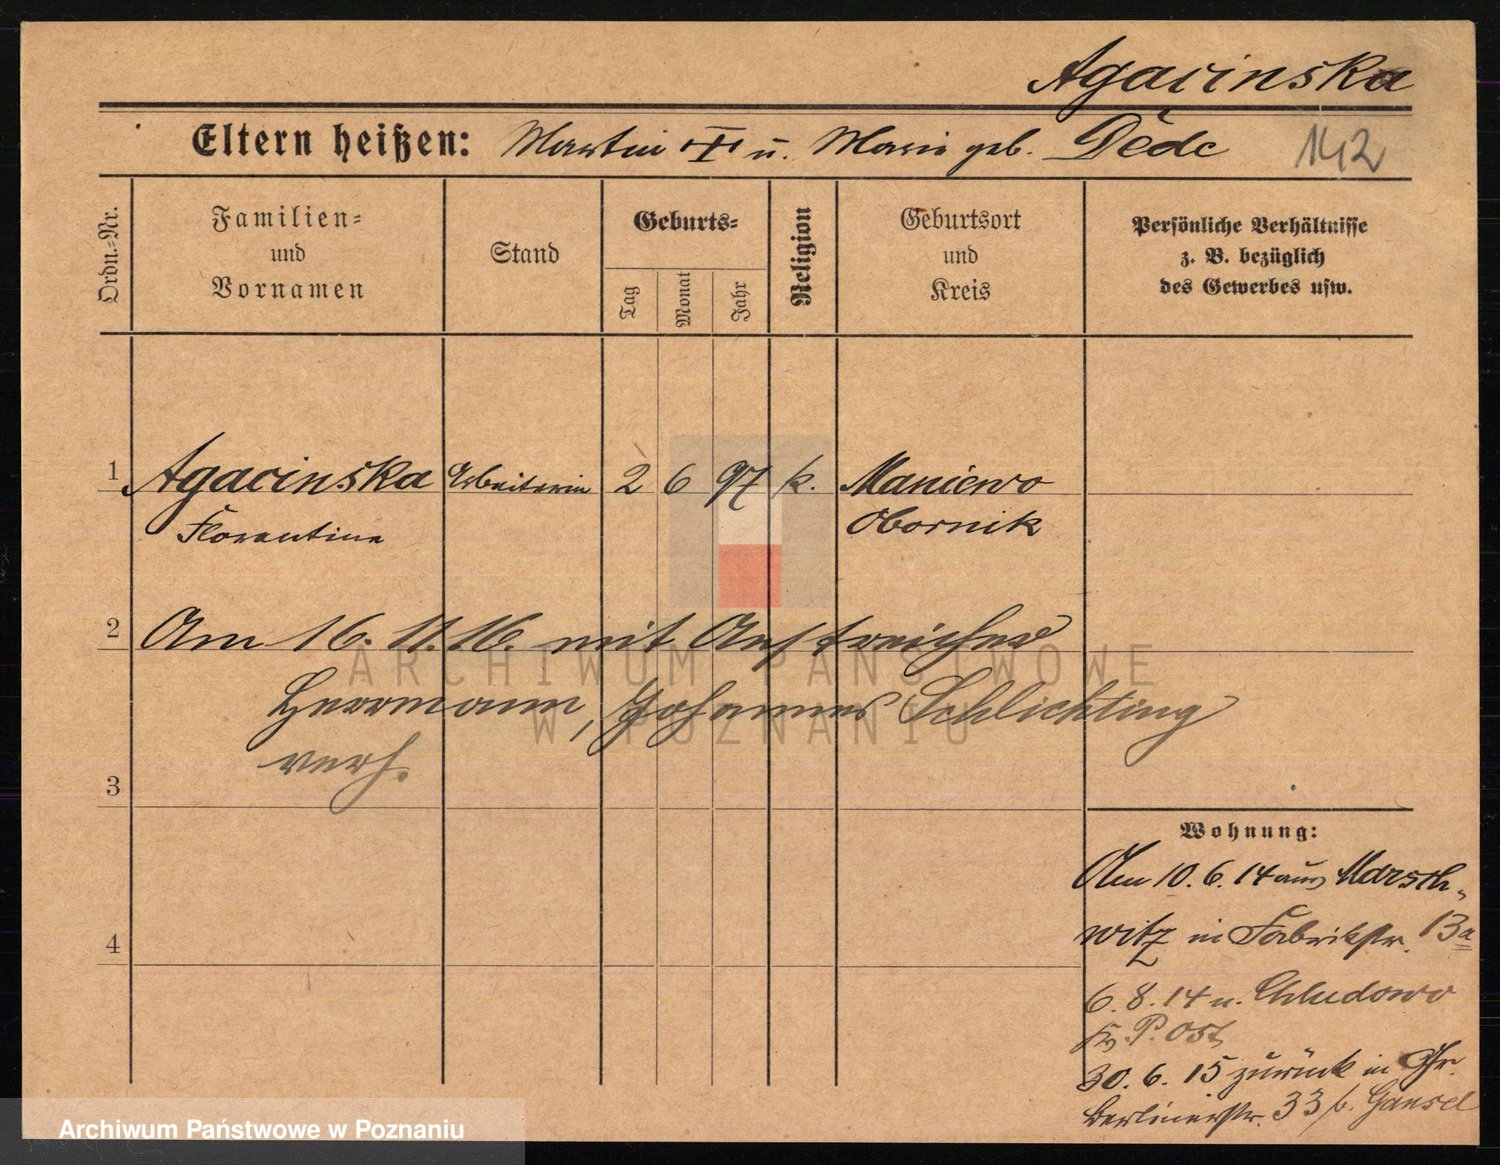 Agacinska
Eltern heißen: Martin + u. Marie geb. Dëdc 142
Ordn.=Nr.
Familien=
und
Vornamen
Stand
Geburts=
Tag
Monat
Jahr
Religion
Geburtsort
und
Kreis
Persönliche Verhältnisse
z. B. bezüglich
des Gewerbes usw.
1 Agacinska Arbeiterin 2 6 97 k. Maniewo
Florentina Obornik
2 Am 16. 11. 16. mit Anstreicher
Herrmann, Johannes Schlichting
verh.
3
4
Wohnung:
Am 10. 6. 14 aus Marsch-
witz in Fabrikstr. 13a
6. 8. 14 n. Chludowo
Kr. P. Ost
30. 6. 15 zurück in Gr.
Berlinerstr. 33 b. Gansel
ARCHIWUM PAŃSTWOWE
W POZNANIU
Archiwum Państwowe w Poznaniu